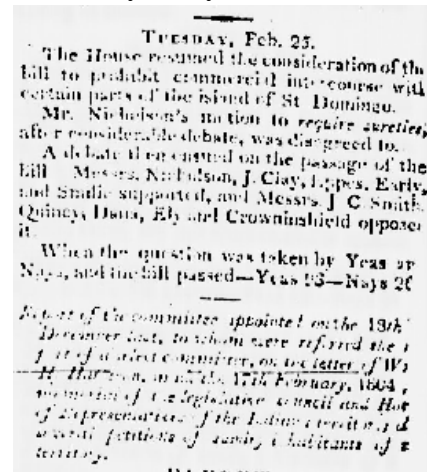 TUESDAY, Feb. 25.
The House resumed the consideration of the
bill to prohibit commercial intercourse with
certain parts of the island of St Domingo.
Mr. Nicholson's motion to require sureties,
after considerable debate, was disgreed to.
A debate then ensued on the passage of the
bill Messrs. Nicholson, J. Clay, Eppes, Early,
and Smilie supported, and Messrs. J. C. Smith,
Quincy, Dana, Ely and Crowninshield opposed
it.
When the question was taken by Yeas
Nays, and the bill passed—Yeas 93—Nays 26
Report of the committee appointed on the 18th
December last, to whom were referred the
of a select committee, on the letter of
February, 1804
memorial of the legislative council and
of Representatives of the Indiana territory
several petitions of sundry inhabitants of
territory.